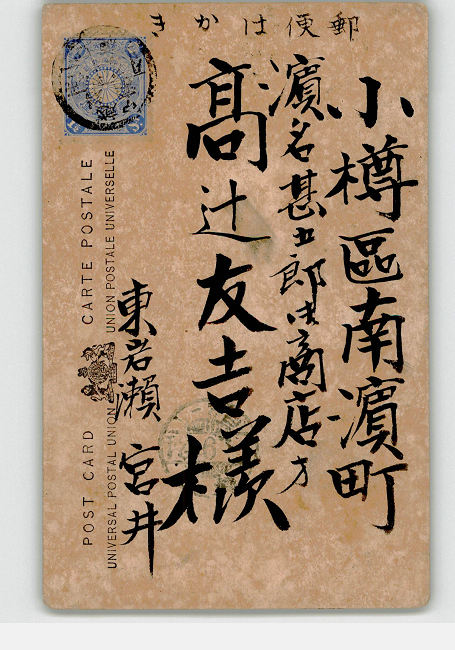 郵便はかき
小樽區南濱町
濱名甚五郎御商店方
髙辻友吉様
東岩瀬 宮井
CARTE POSTALE
UNION POSTALE UNIVERSELLE
POST CARD
UNIVERSAL POSTAL UNION